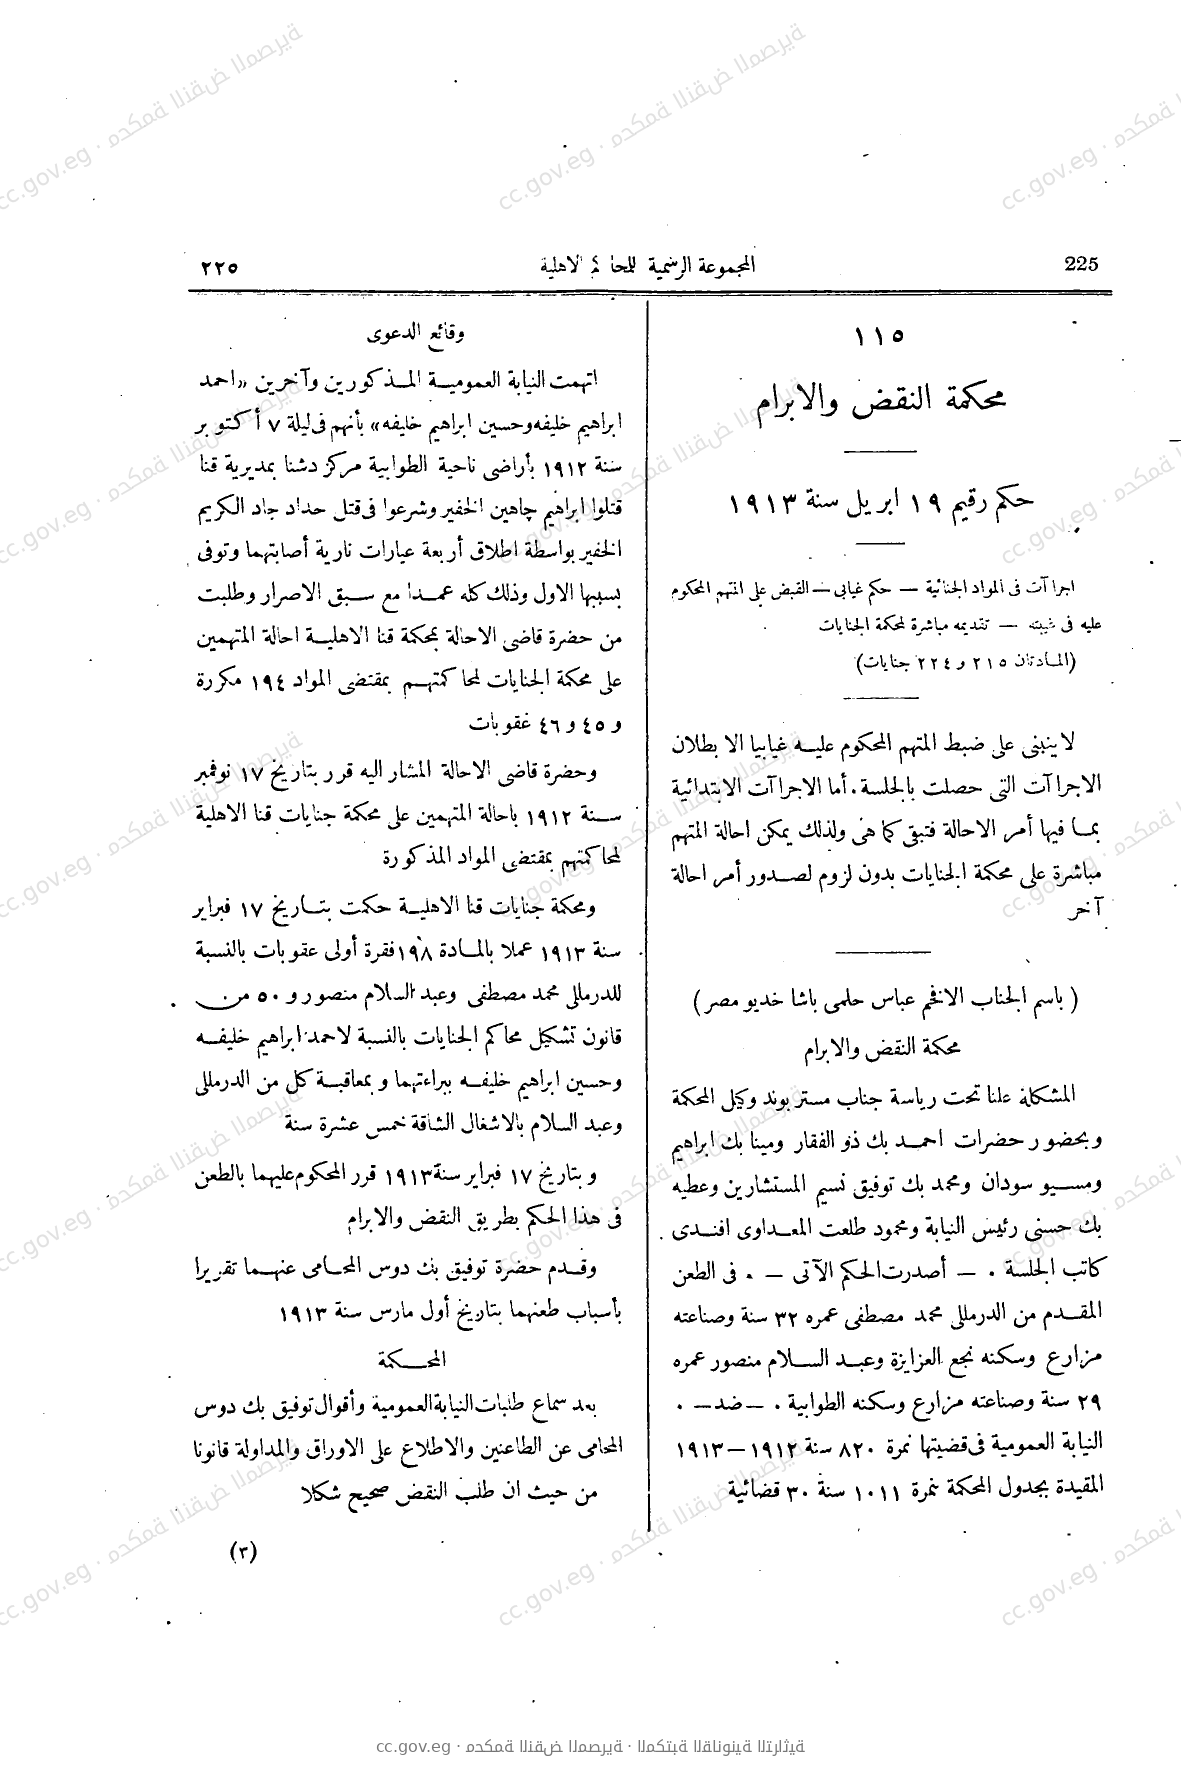 225
المجموعة الرسمية للمحاكم الاهلية
٢٢٥
١١٥
محكمة النقض والابرام
حكم رقيم ١٩ ابريل سنة ١٩١٣
اجراآت فى المواد الجنائية — حكم غيابي — القبض على المتهم المحكوم
عليه فى غيبته — تقديمه مباشرة لمحكمة الجنايات
(المادتان ٢١٥ و ٢٢٤ جنايات)
لا ينبنى على ضبط المتهم المحكوم عليه غيابيا الا بطلان
الاجراآت التى حصلت بالجلسة . أما الاجراآت الابتدائية
بما فيها أمر الاحالة فتبقى كما هى ولذلك يمكن احالة المتهم
مباشرة على محكمة الجنايات بدون لزوم لصدور أمر احالة
آخر
( باسم الجناب الافخم عباس حلمى باشا خديو مصر )
محكمة النقض والابرام
المشكلة علنا تحت رياسة جناب مستر بوند وكيل المحكمة
وبحضور حضرات احمد بك ذو الفقار ومينا بك ابراهيم
ومسيو سودان ومحمد بك توفيق نسيم المستشارين وعطيه
بك حسنى رئيس النيابة ومحمود طلعت المعداوى افندى
كاتب الجلسة . — أصدرت الحكم الآتى — . فى الطعن
المقدم من الدرمللى محمد مصطفى عمره ٣٢ سنة وصناعته
مزارع وسكنه نجع العزايزة وعبد السلام منصور عمره
٢٩ سنة وصناعته مزارع وسكنه الطوابية . — ضد — .
النيابة العمومية فى قضيتها نمرة ٨٢٠ سنة ١٩١٢ — ١٩١٣
المقيدة بجدول المحكمة نمرة ١٠١١ سنة ٣٠ قضائية
وقائع الدعوى
اتهمت النيابة العمومية المذكورين وآخرين «احمد
ابراهيم خليفه وحسين ابراهيم خليفه» بأنهم فى ليلة ٧ أكتوبر
سنة ١٩١٢ بأراضى ناحية الطوابية مركز دشنا بمديرية قنا
قتلوا ابراهيم چاهين الخفير وشرعوا فى قتل حداد جاد الكريم
الخفير بواسطة اطلاق أربعة عيارات نارية أصابتهما وتوفى
بسببها الاول وذلك كله عمدا مع سبق الاصرار وطلبت
من حضرة قاضى الاحالة بمحكمة قنا الاهلية احالة المتهمين
على محكمة الجنايات لمحاكمتهم بمقتضى المواد ١٩٤ مكررة
و ٤٥ و ٤٦ عقوبات
وحضرة قاضى الاحالة المشار اليه قرر بتاريخ ١٧ نوفمبر
سنة ١٩١٢ باحالة المتهمين على محكمة جنايات قنا الاهلية
لمحاكمتهم بمقتضى المواد المذكورة
ومحكمة جنايات قنا الاهلية حكمت بتاريخ ١٧ فبراير
سنة ١٩١٣ عملا بالمادة ١٩٨ فقرة أولى عقوبات بالنسبة
للدرمللى محمد مصطفى وعبد السلام منصور و ٥٠ من
قانون تشكيل محاكم الجنايات بالنسبة لاحمد ابراهيم خليفه
وحسين ابراهيم خليفه ببراءتهما و بمعاقبة كل من الدرمللى
وعبد السلام بالاشغال الشاقة خمس عشرة سنة
وبتاريخ ١٧ فبراير سنة ١٩١٣ قرر المحكوم عليهما بالطعن
فى هذا الحكم بطريق النقض والابرام
وقدم حضرة توفيق بك دوس المحامى عنهما تقريرا
بأسباب طعنهما بتاريخ أول مارس سنة ١٩١٣
المحكمة
بعد سماع طلبات النيابة العمومية وأقوال توفيق بك دوس
المحامى عن الطاعنين والاطلاع على الاوراق والمداولة قانونا
من حيث ان طلب النقض صحيح شكلا
(٣)
cc.gov.eg · محكمة النقض المصرية · المكتبة القانونية التراثية